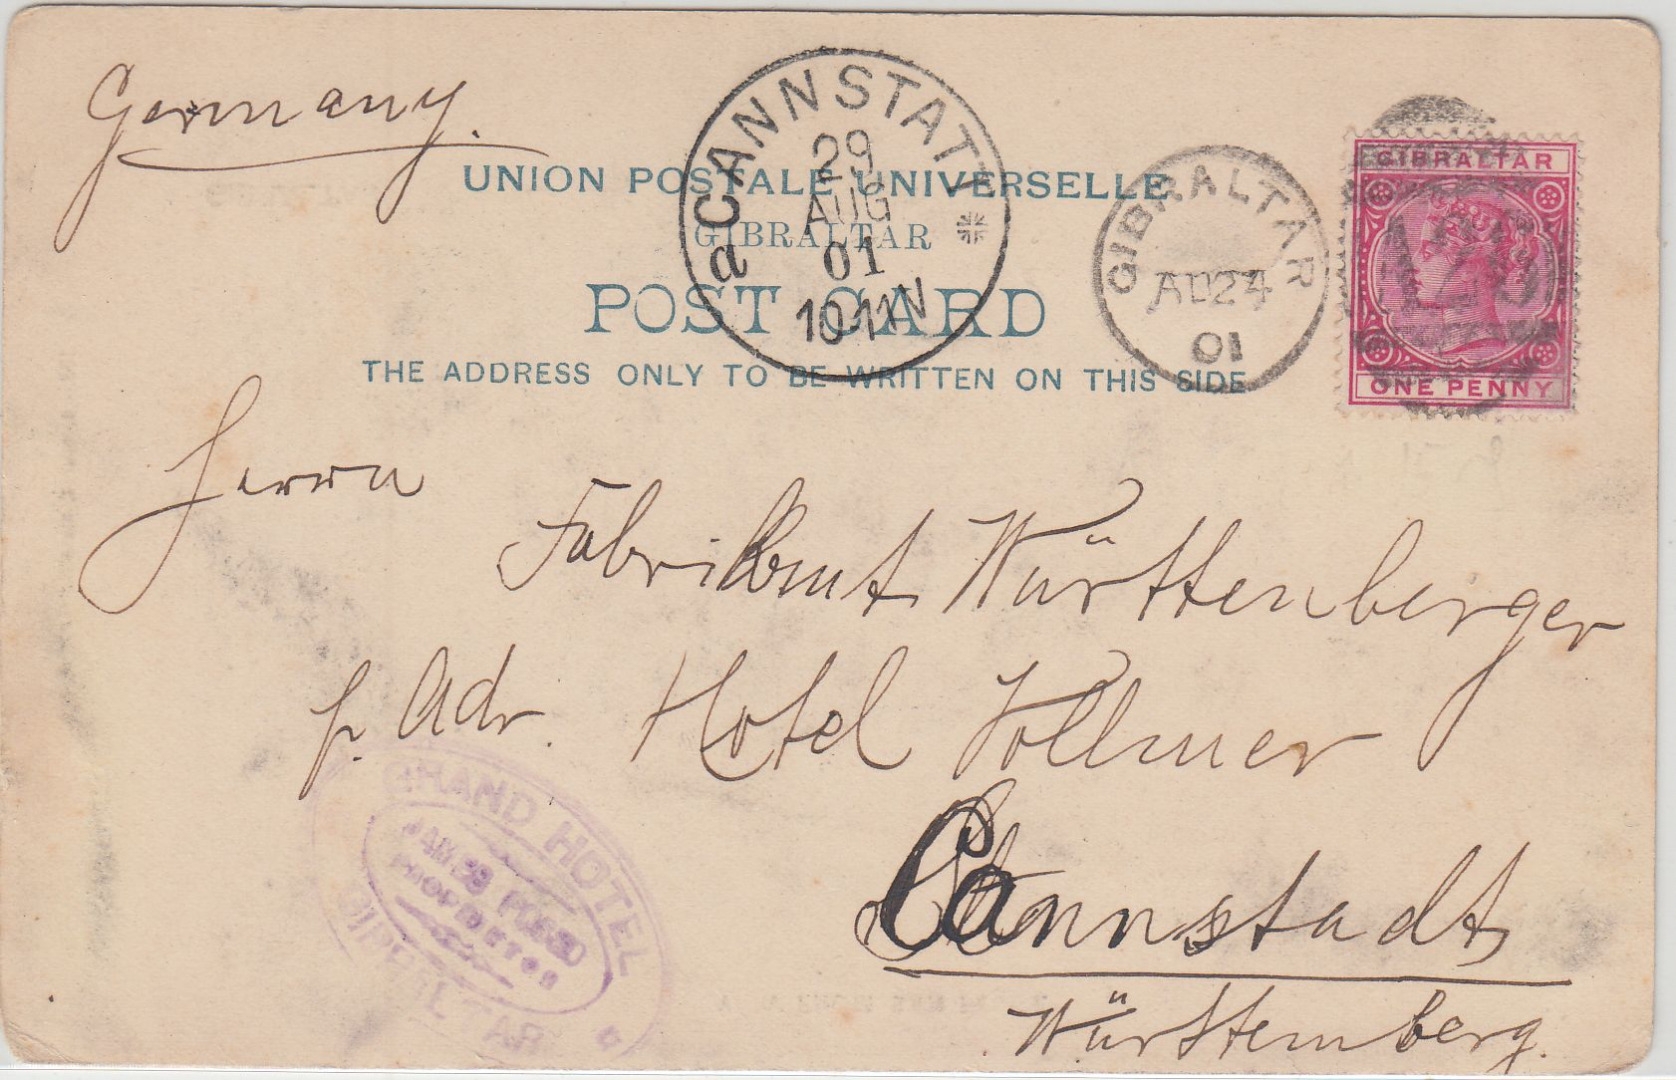 Germany.
UNION POSTALE UNIVERSELLE
GIBRALTAR
POST CARD
THE ADDRESS ONLY TO BE WRITTEN ON THIS SIDE
CANNSTATT
29
AUG
01
10-11 V
a
GIBRALTAR
AU 24
01
GIBRALTAR
ONE PENNY
Herrn
Württenberger
p. Adr. Hotel Vollmer
Cannstadt
Württemberg.
GRAND HOTEL
GIBRALTAR